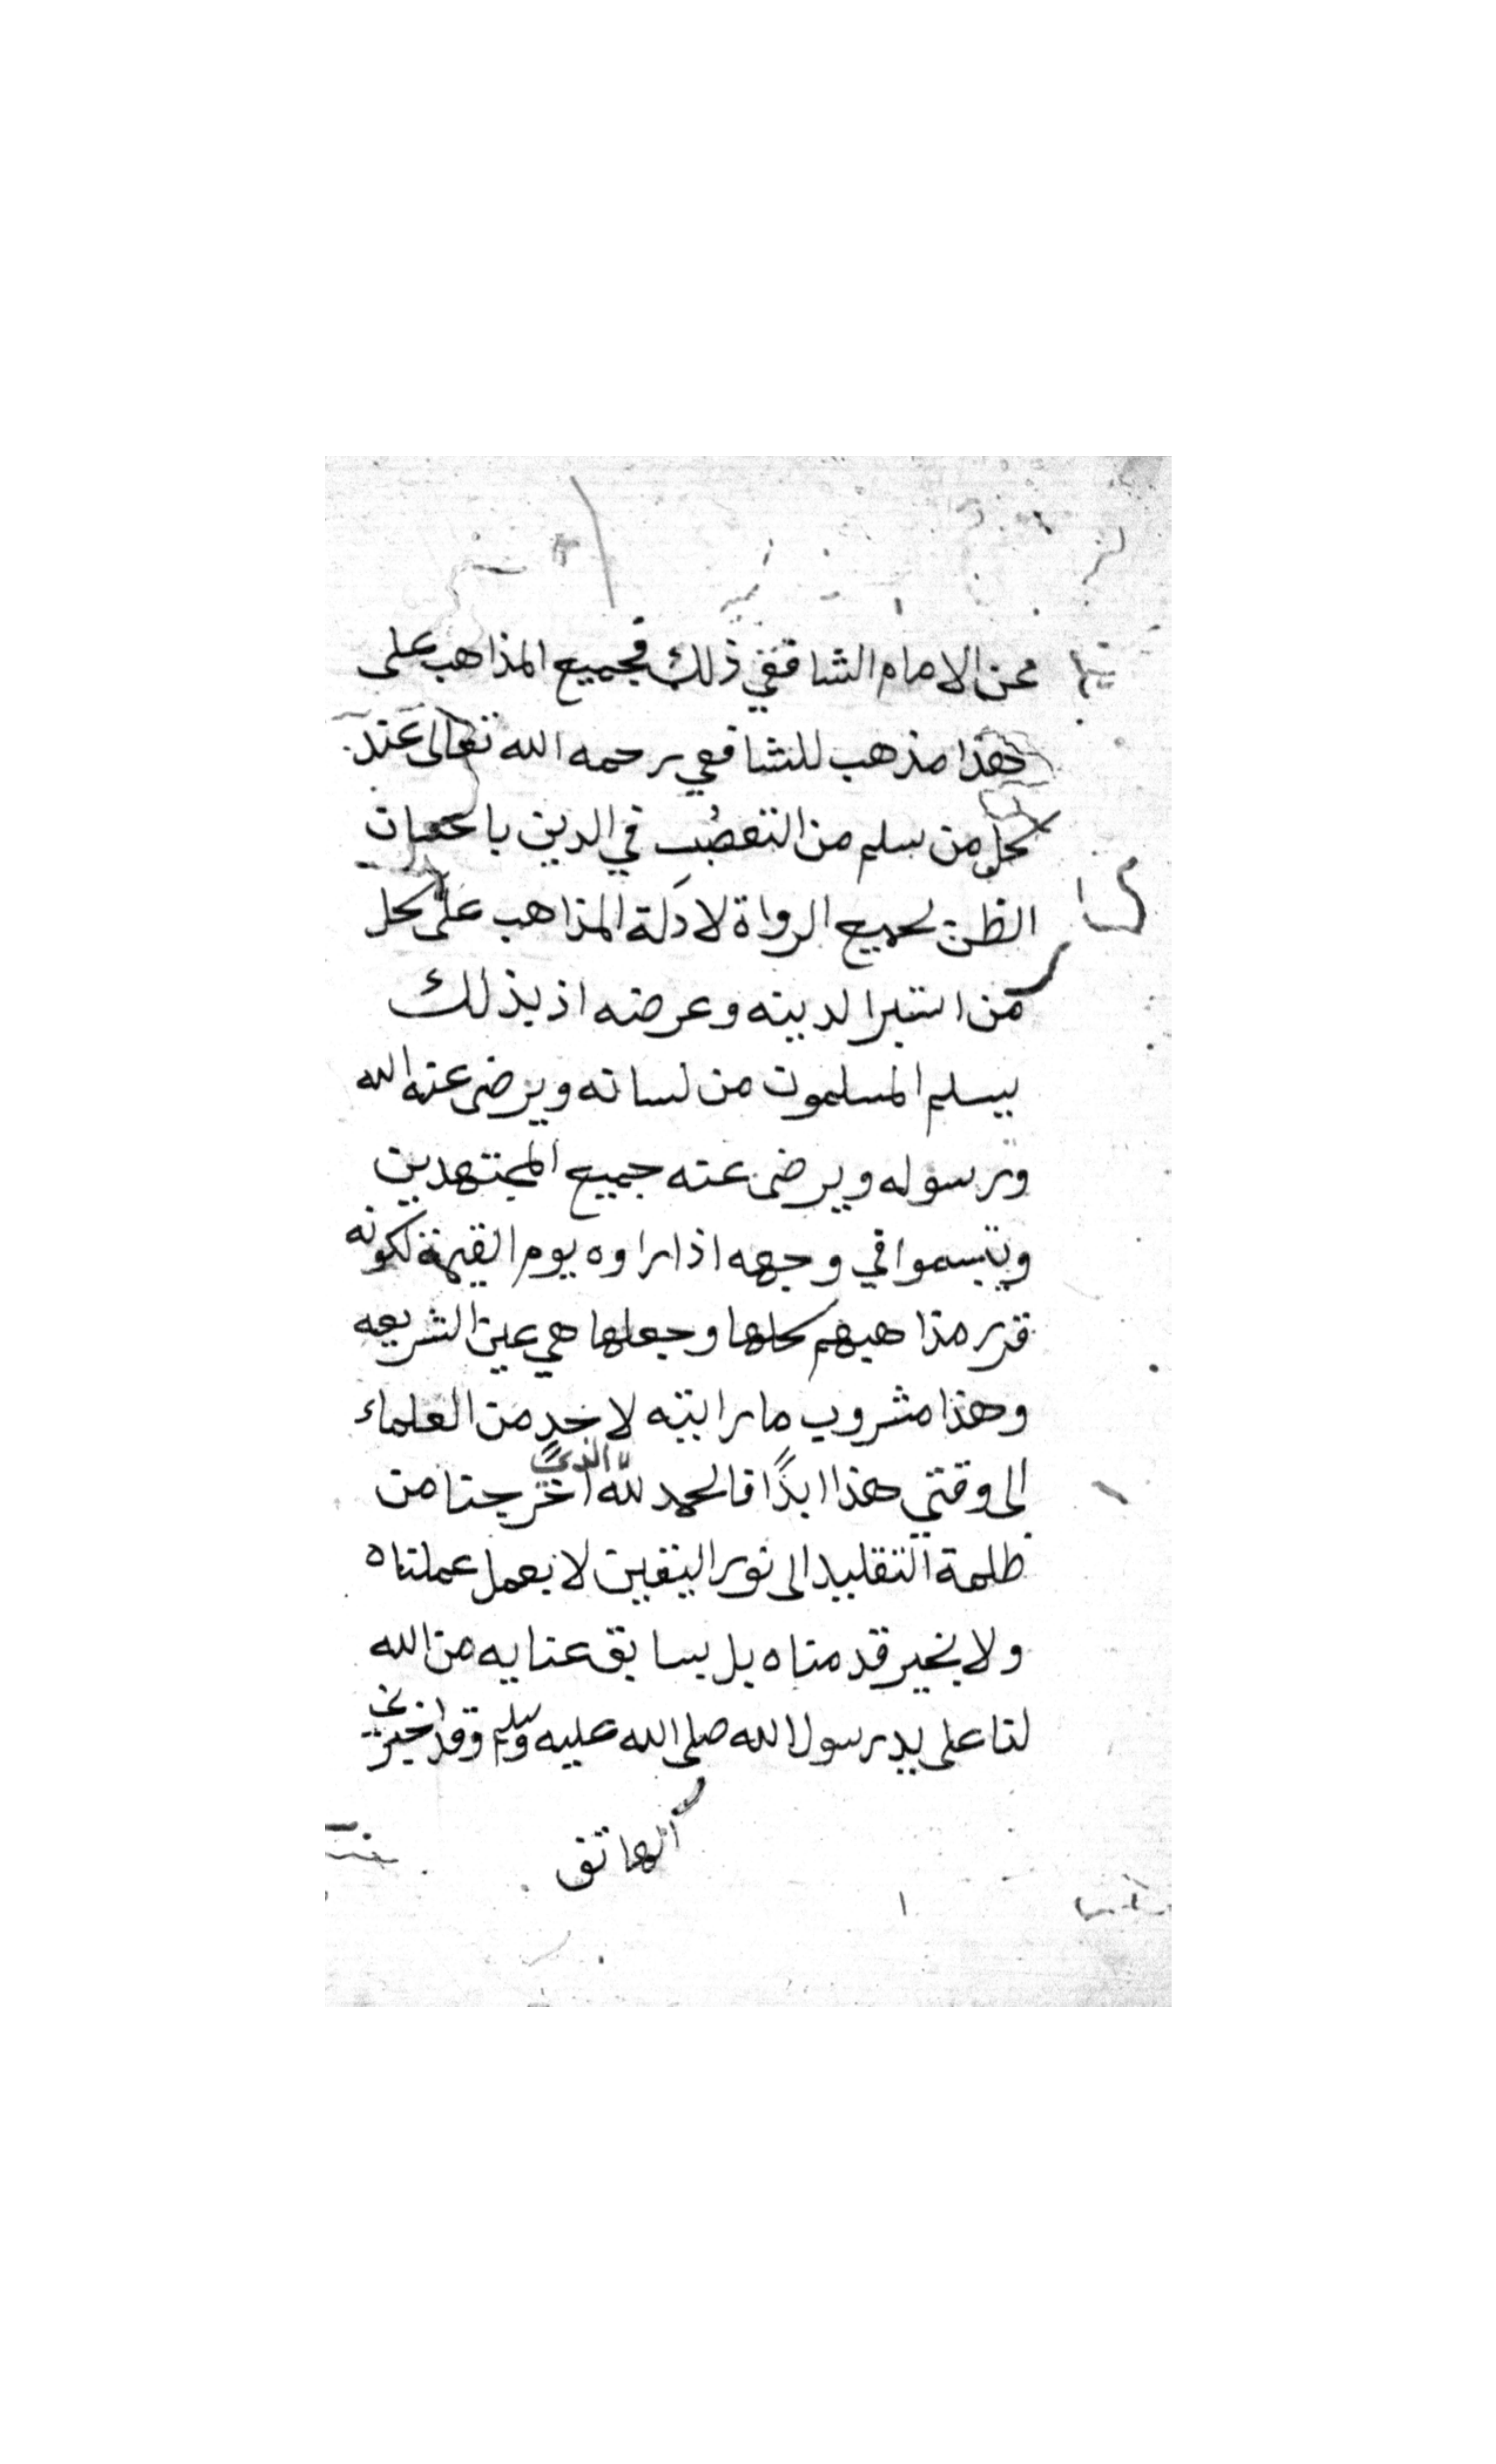 عن الامام الشافعي ذلك فجميع المذاهب على
هذا مذهب للشافعي رحمه الله تعالى عند
كل من سلم من التعصب في الدين باحسان
الظن لجميع الرواة لادلة المذاهب على كل
من استبرا لدينه وعرضه اذ بذلك
يسلم المسلمون من لسانه ويرضى عنه الله
ورسوله ويرضى عنه جميع المجتهدين
ويتبسموا في وجهه اذا راوه يوم القيمة لكونه
قرر مذاهبهم كلها وجعلها هي عين الشريعه
وهذا مشروب ما رايته لاحد من العلماء
الى وقتي هذا ابدًا فالحمد لله الذي اخرجنا من
ظلمة التقليد الى نور اليقين لا بعمل عملناه
ولا بخير قدمناه بل بسابق عنايه من الله
لنا على يد رسول الله صلى الله عليه وسلم وقد اخبرني
الهاتف